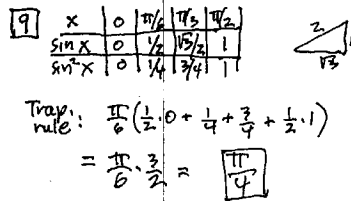 9 x 0 π/6 π/3 π/2
sin x 0 1/2 √3/2 1
sin² x 0 1/4 3/4 1
2
√3
Trap. rule: π/6 (1/2 · 0 + 1/4 + 3/4 + 1/2 · 1)
= π/6 · 3/2 = π/4